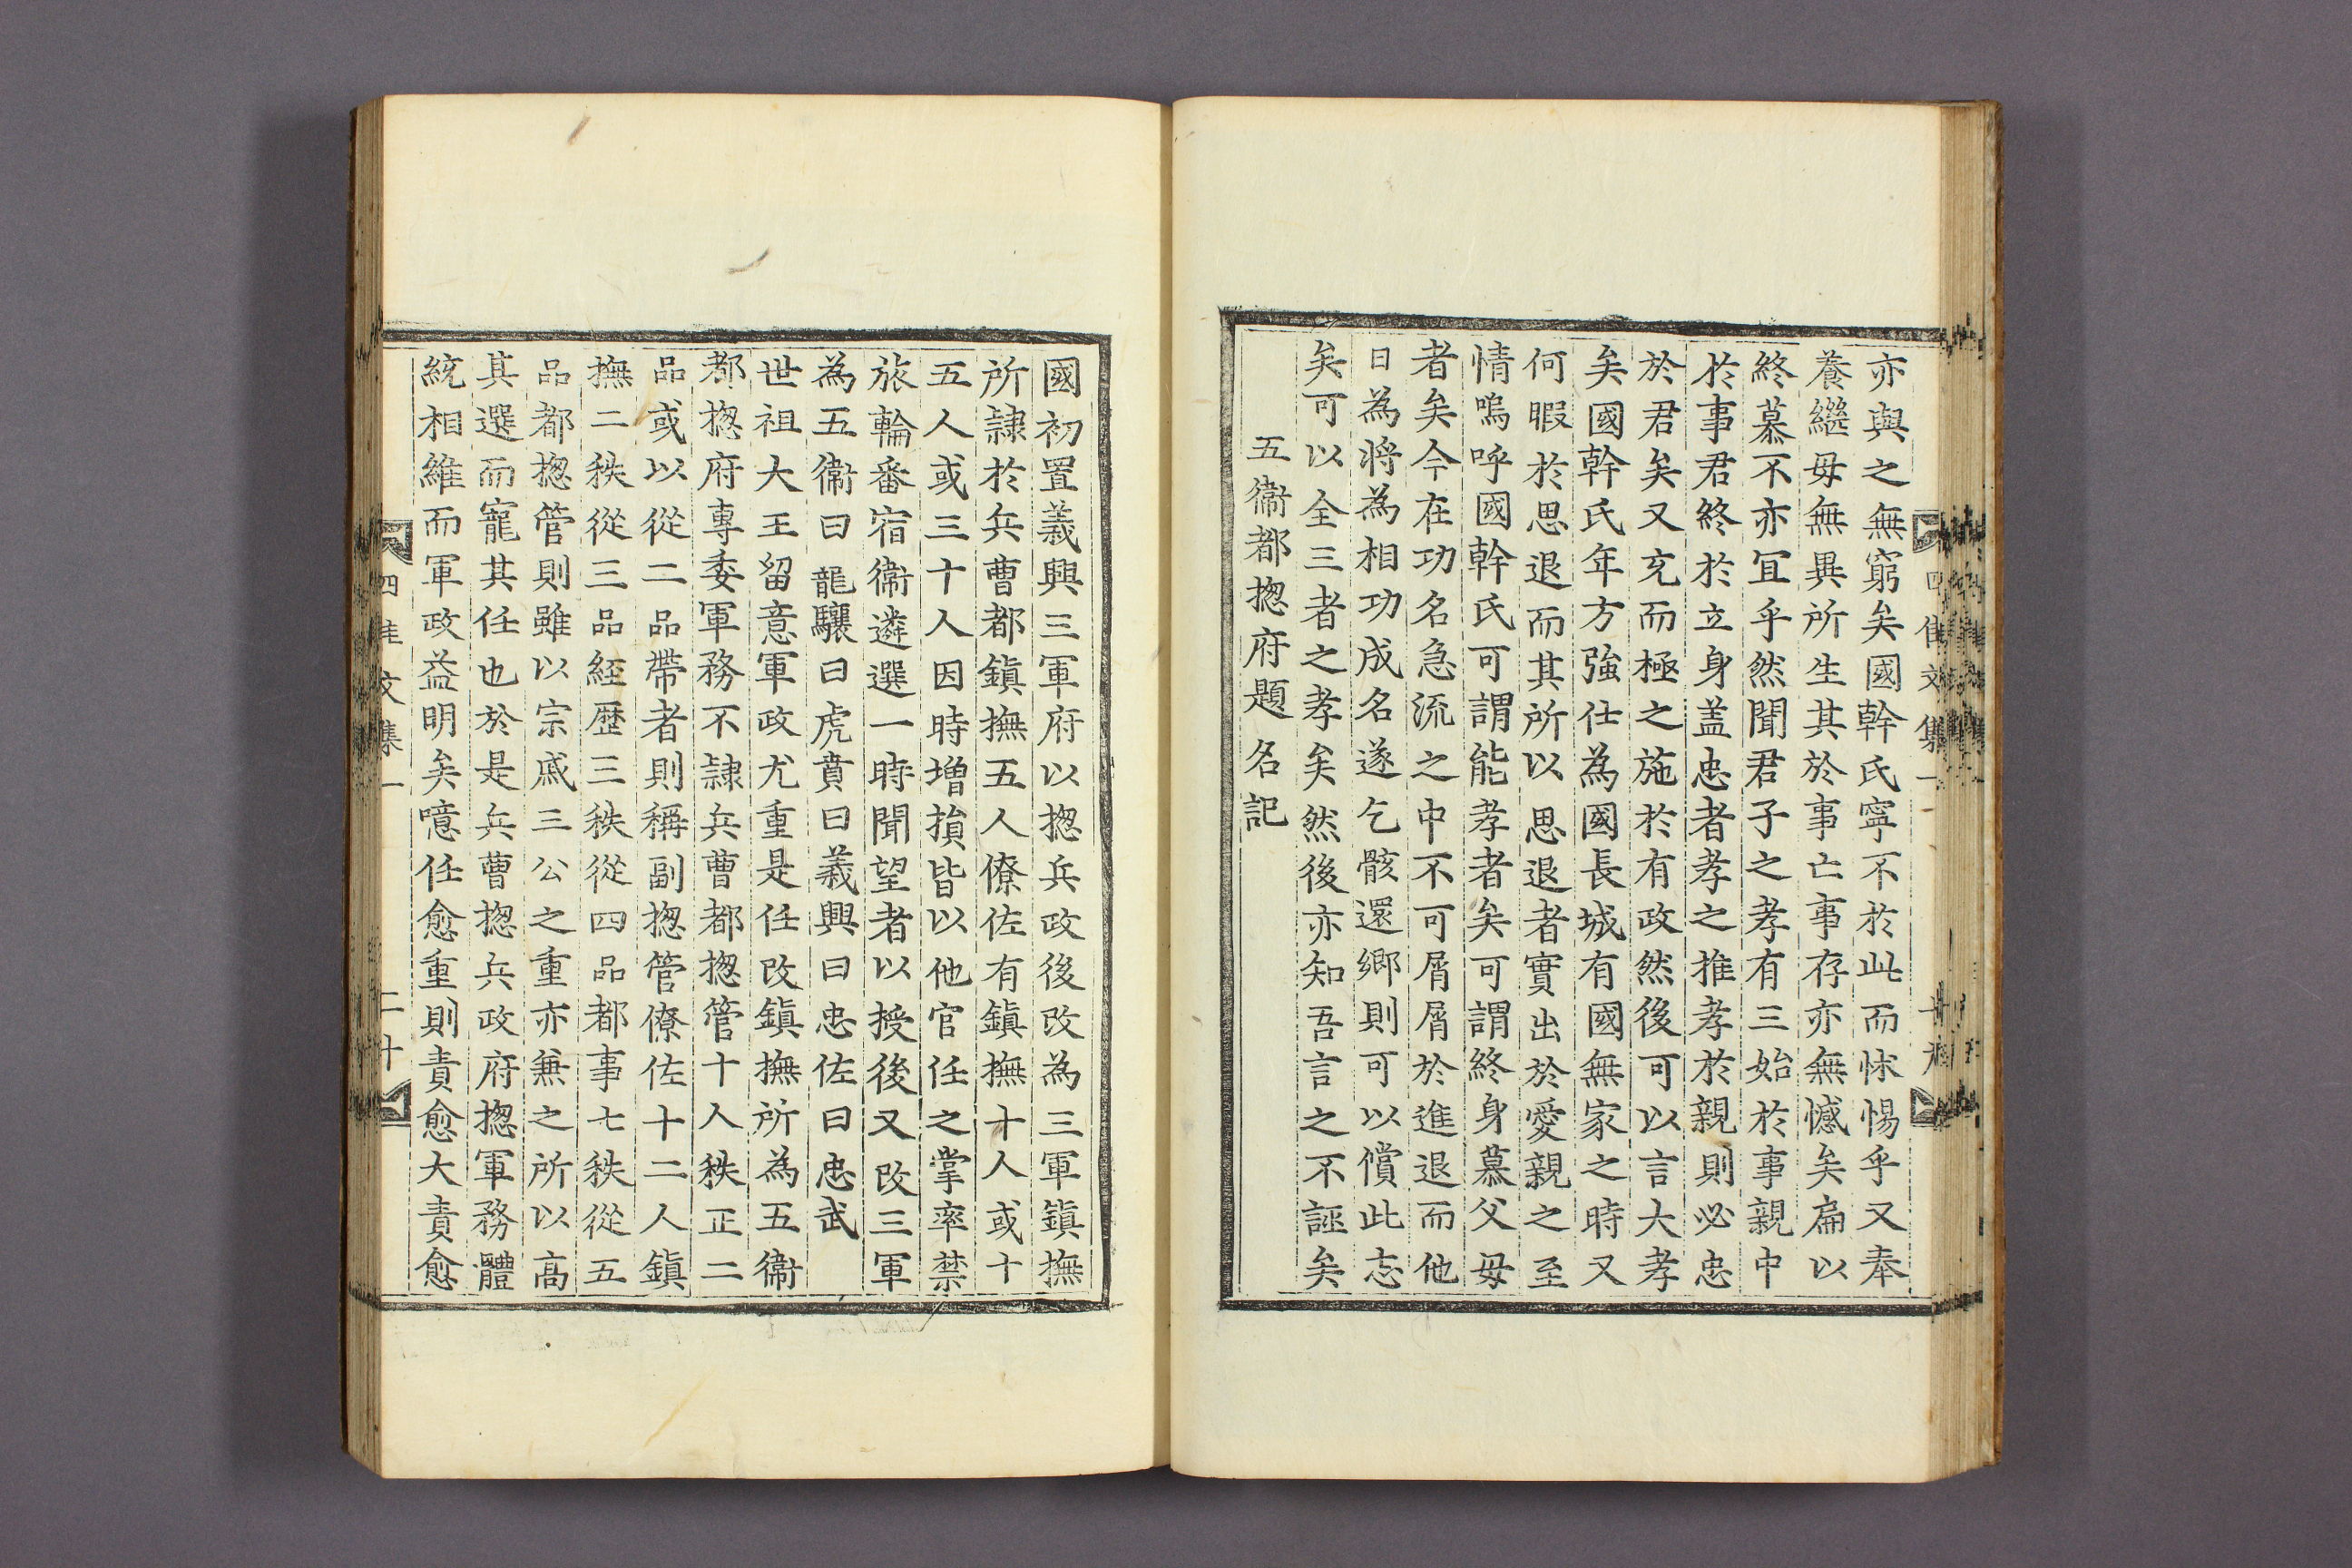 亦與之無窮矣國幹氏寧不於此而怵惕乎又奉
養繼毋無異所生其於事亡事存亦無憾矣扁以
終慕不亦冝乎然聞君子之孝有三始於事親中
於事君終於立身盖忠者孝之推孝於親則必忠
於君矣又充而極之施於有政然後可以言大孝
矣國幹氏年方強仕為國長城有國無家之時又
何暇於思退而其所以思退者實出於愛親之至
情嗚呼國幹氏可謂能孝者矣可謂終身慕父毋
者矣今在功名急流之中不可屑屑於進退而他
日為將為相功成名遂乞骸還鄉則可以償此志
矣可以全三者之孝矣然後亦知吾言之不誣矣
五衛都摠府題名記
國初置義興三軍府以摠兵政後改為三軍鎮撫
所隷於兵曹都鎮撫五人僚佐有鎮撫十人或十
五人或三十人因時增損皆以他官任之掌率禁
旅輪番宿衛遴選一時聞望者以授後又改三軍
為五衛曰龍驤曰虎賁曰義興曰忠佐曰忠武
世祖大王留意軍政尤重是任改鎮撫所為五衛
都摠府專委軍務不隷兵曹都摠管十人秩正二
品或以從二品帶者則稱副摠管僚佐十二人鎮
撫二秩從三品経歷三秩從四品都事七秩從五
品都摠管則雖以宗戚三公之重亦兼之所以高
其選而寵其任也於是兵曹摠兵政府摠軍務體
統相維而軍政益明矣噫任愈重則責愈大責愈
四佳文集一
二十